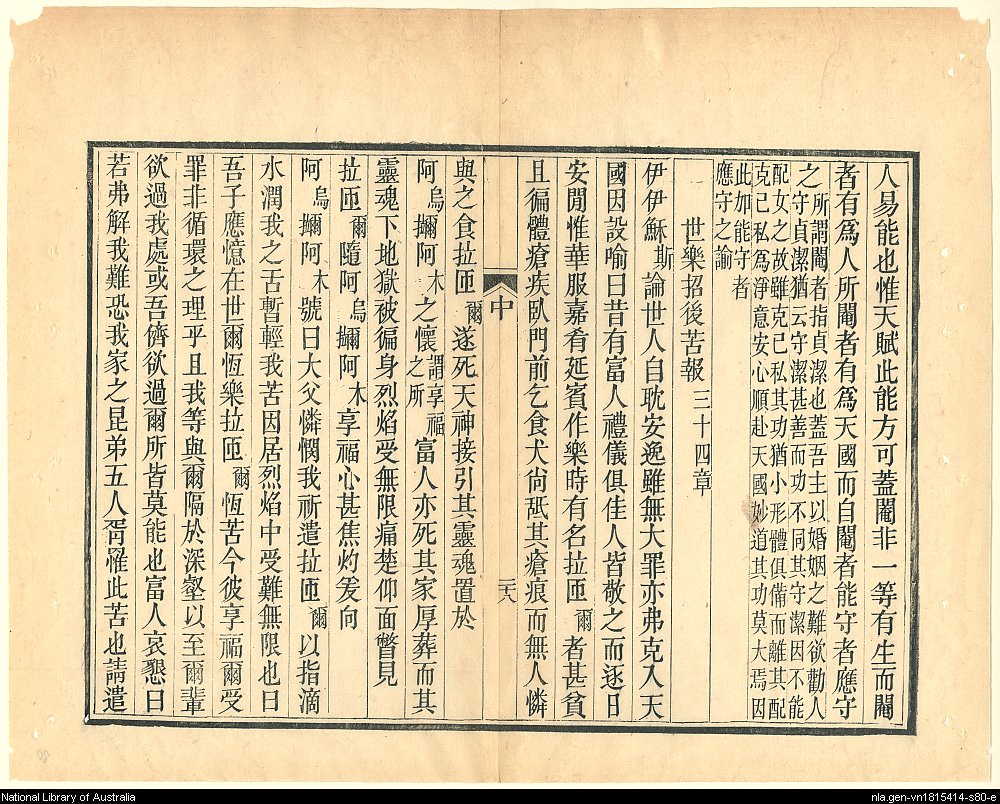 人易能也惟天賦此能方可蓋閹非一等有生而閹
者有爲人所閹者有爲天國而自閹者能守者應守
之所謂閹者指貞潔也蓋吾主以婚姻之難欲勸人
守貞潔猶云守潔甚善而功不同其守潔因不能
配女之故雖克己私其功猶小形體俱備而離其配
克己私爲淨意安心順赴天國妙道其功莫大焉因
此如能守者
應守之諭
世樂招後苦報 三十四章
伊伊穌斯諭世人自耽安逸雖無大罪亦弗克入天
國因設喻曰昔有富人禮儀俱佳人皆敬之而逐日
安閒惟華服嘉肴延賓作樂時有名拉匝爾者甚貧
且徧體瘡疾臥門前乞食犬尙舐其瘡痕而無人憐
中
二八
與之食拉匝爾遂死天神接引其靈魂置於
阿烏擟阿木之懷謂享福之所富人亦死其家厚葬而其
靈魂下地獄被徧身烈焰受無限痛楚仰面瞥見
拉匝爾隨阿烏擟阿木享福心甚焦灼爰向
阿烏擟阿木號曰大父憐憫我祈遣拉匝爾以指滴
水潤我之舌暫輕我苦因居烈焰中受難無限也曰
吾子應憶在世爾恆樂拉匝爾恆苦今彼享福爾受
罪非循環之理乎且我等與爾隔於深壑以至爾輩
欲過我處或吾儕欲過爾所皆莫能也富人哀懇曰
若弗解我難恐我家之昆弟五人胥罹此苦也請遣
National Library of Australia
nla.gen-vn1815414-s80-e